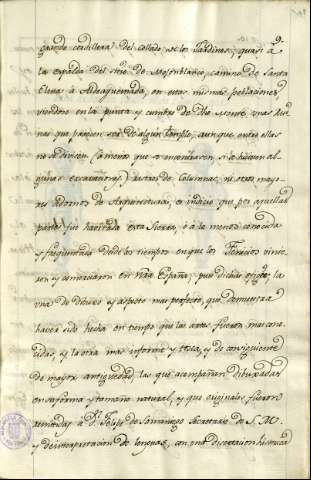 grande cordillera del collado de los Jardines, quasi á
la espalda del sitio de Mojonblanco, camino de Santa
Elena á Aldeaquemada, en estas mismas poblaciones
viendose en la punta y cumbre de dho monte unas Rui
nas que parecen ser de algun templo, aunque entre ellas
no se divisan (a menos que se encontrasen si se hiciesen al
gunas excavaciones) rastros de Columnas, ni otros mayo
res adornos de Arquitectura, es indicio que por aquella
parte fue havitada esta Sierra, ó á lo menos conocida
y frequentada desde los tiempos en que los Fenicios vinie
ron y comerciaron en Nra España; pues dichas efigies, la
una de dibuxo y aspecto mas perfecto, que demuestra
haver sido hecha en tiempo que las artes fueron mas cono
cidas, y la otra mas informe y tosca, y de consiguiente
de mayor antiguedad, las que acompañan dibuxadas
en su forma y tamaño natural, y que originales fueron
remitidas á Dn. Felipe de Samaniego Secretario de S. M.
y de interpretacion de lenguas, con una disertacion historica